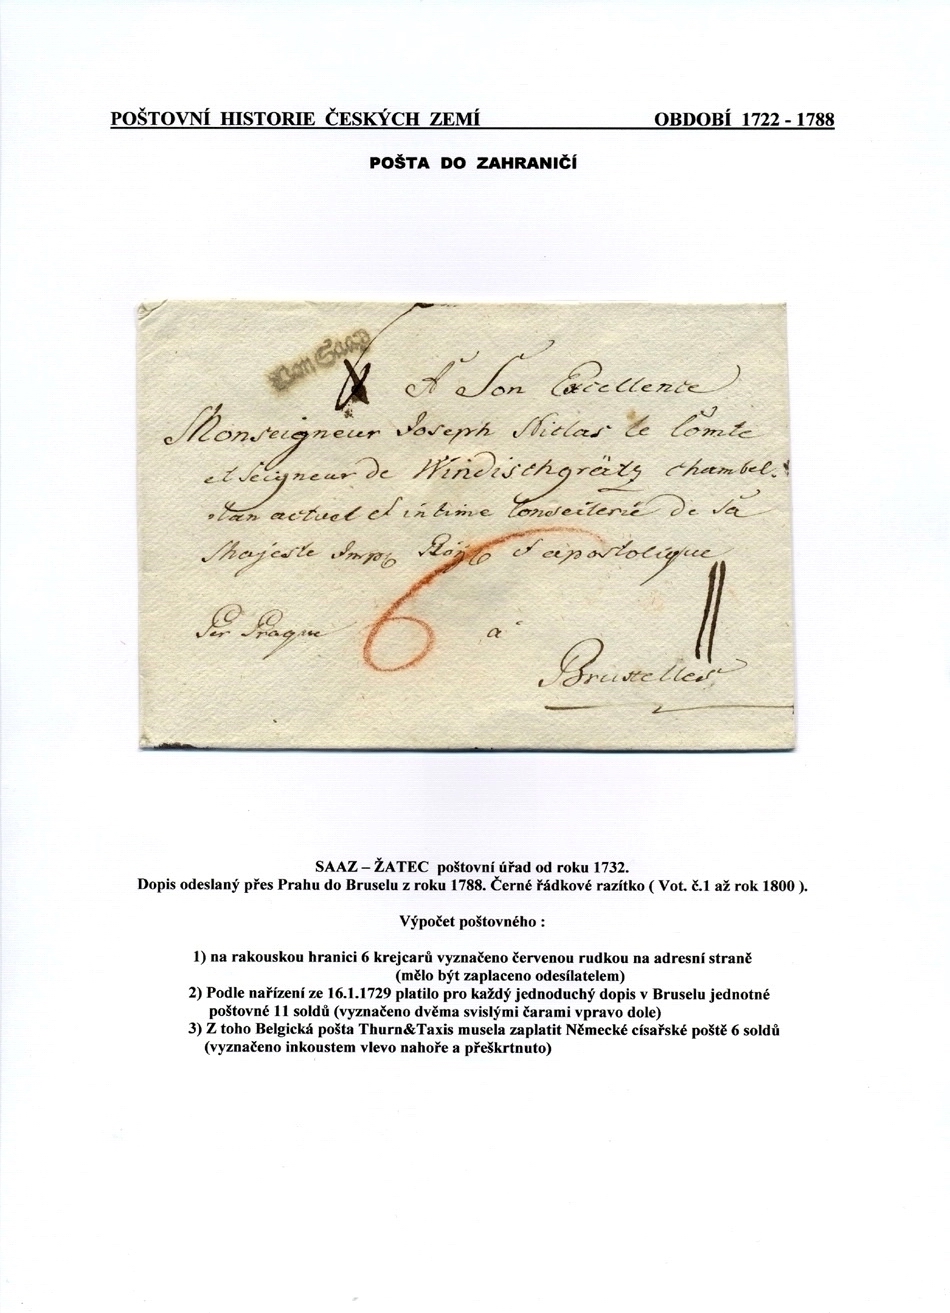 POŠTOVNÍ HISTORIE ČESKÝCH ZEMÍ OBDOBÍ 1722 - 1788
POŠTA DO ZAHRANIČÍ
Von Saaz
A Son Excellence
Monseigneur Joseph Niclas le Comte
et Seigneur de Windischgrätz chambel-
lan actuel et intime de Sa
Majeste Imp Roy et apostolique
6
Per Prague a
Bruxelles
SAAZ – ŽATEC poštovní úřad od roku 1732.
Dopis odeslaný přes Prahu do Bruselu z roku 1788. Černé řádkové razítko ( Vot. č.1 až rok 1800 ).
Výpočet poštovného :
1) na rakouskou hranici 6 krejcarů vyznačeno červenou rudkou na adresní straně
(mělo být zaplaceno odesílatelem)
2) Podle nařízení ze 16.1.1729 platilo pro každý jednoduchý dopis v Bruselu jednotné
poštovné 11 soldů (vyznačeno dvěma svislými čarami vpravo dole)
3) Z toho Belgická pošta Thurn&Taxis musela zaplatit Německé císařské poště 6 soldů
(vyznačeno inkoustem vlevo nahoře a přeškrtnuto)